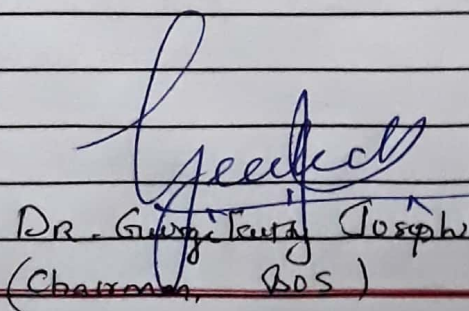 DR. Georgekutty Joseph
(Chairman, BOS)